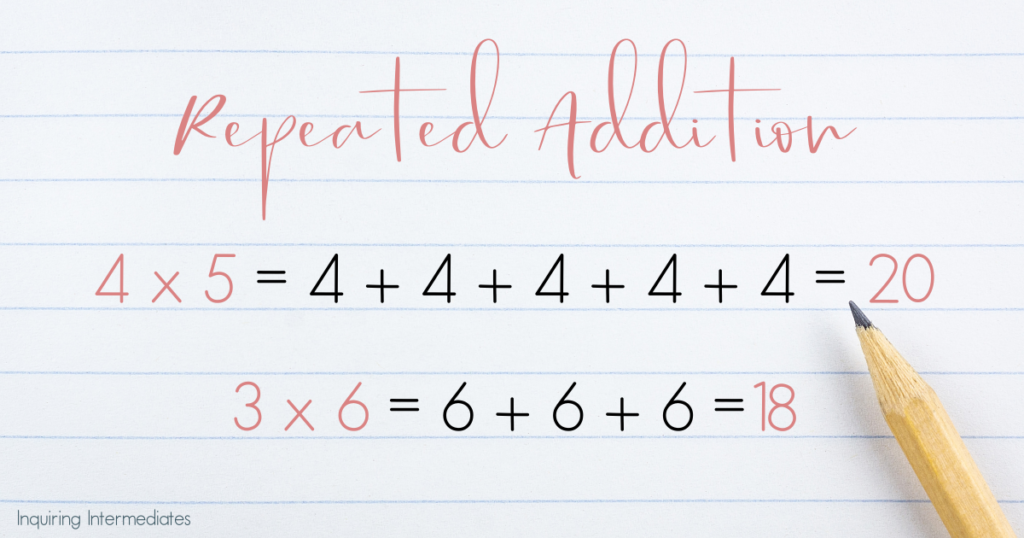 Repeated Addition
4 x 5 = 4 + 4 + 4 + 4 + 4 = 20
3 x 6 = 6 + 6 + 6 = 18
Inquiring Intermediates